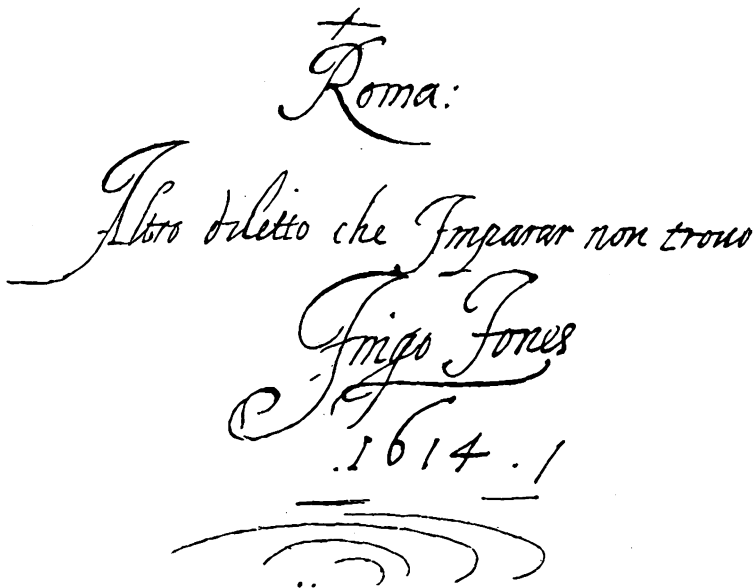 Roma:
Altro diletto che Imparar non trouo
Inigo Jones
.1614.